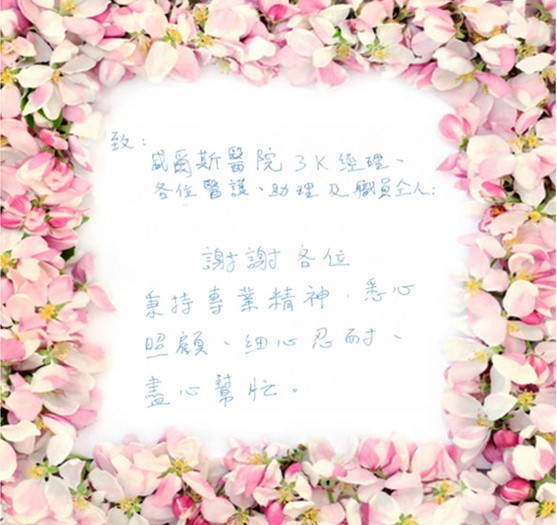 致：
威爾斯醫院 3K 經理、
各位醫護、助理及職員仝人：
謝謝各位
秉持專業精神，悉心
照顧、細心忍耐、
盡心幫忙。